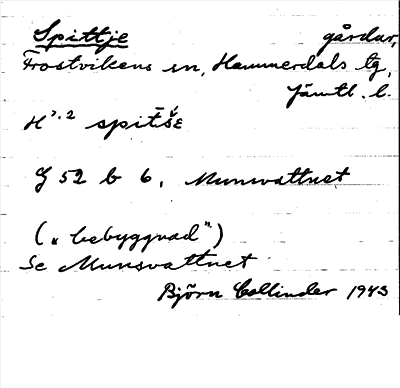 Spittje gårdar,
Frostvikens sn, Hammerdals tg,
Jämtl. l.
H 7.2 spit̄šE
G 52 b 6, Munsvattnet
(„bebyggnad")
Se Munsvattnet
Björn Collinder 1943